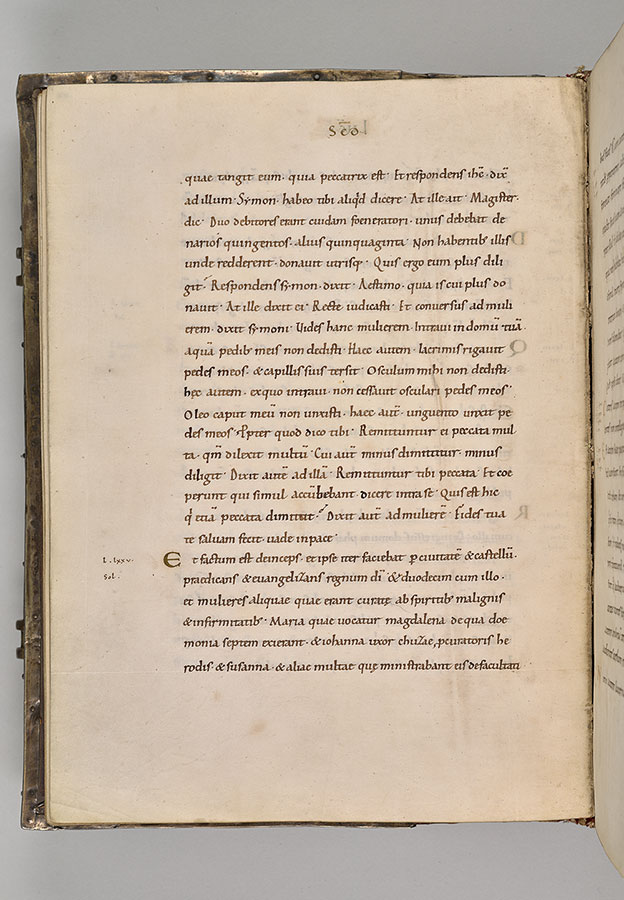 Scđ
quae tangit eum · quia peccatrix est · Et respondens ihc̄ · dix̄
ad illum · Symon · habeo tibi aliq̇d dicere · At ille ait · Magister ·
dic · Duo debitores erant cuidam foeneratori · unus debebat de
narios quingentos · alius quinquaginta · Non habentib; illis
unde redderent · donavit utrisq; · Quis ergo eum plus dili
git · Respondens symon · dixit · Aestimo · quia is cui plus do
navit · At ille dixit ei · Recte iudicasti · Et conversus ad muli
erem · dixit symoni · Vides hanc mulierem · Intravi in domū tuā ·
aquā pedib; meis non dedisti · Haec autem · lacrimis rigavit
pedes meos · & capillis suis tersit · Osculum mihi non dedisti ·
hęc autem · ex quo intravi · non cessavit osculari pedes meos ·
Oleo caput meū non unxisti · haec aut̄ · unguento unxit pe
des meos · ꝓpter quod dico tibi · Remittuntur ei peccata mul
ta · qm̄ dilexit multū · Cui aut̄ minus dimittitur · minus
diligit · Dixit autē ad illā · Remittuntur tibi peccata · Et coe
perunt qui simul accūbebant dicere intra sē · Quis est hic
q̇ etiā peccata dimittit · Dixit aut̄ ad mulierē · Fides tua
te salvam fecit · vade in pace ·
L · lxxv ·
Et factum est deinceps · et ipse iter faciebat ꝑ civitatē & castellū ·
sol ·
praedicans & evangelizans regnum dī · & duodecim cum illo ·
et mulieres aliquae quae erant curatę ab spiritib; malignis
& infirmitatib; · Maria quae vocatur magdalena de qua doe
monia septem exierant · & iohanna uxor chuzae ꝓcuratoris he
rodis · & susanna · & aliae multae quę ministrabant eis de facultati